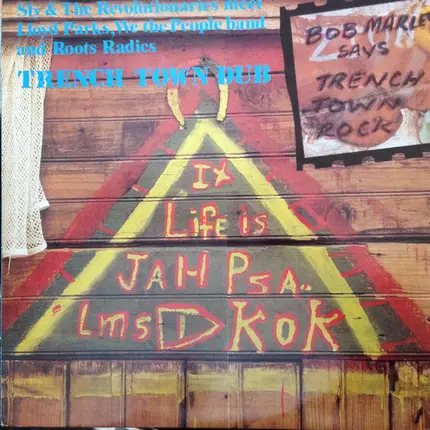 Sly & The Revolutionaries meet
Lloyd Parks, We the People band
and Roots Radics
TRENCH TOWN DUB
BOB MARLEY
SAYS
TRENCH
TOWN
ROCK
IT
LiFe is
JAH PSA..
LmsD KOK